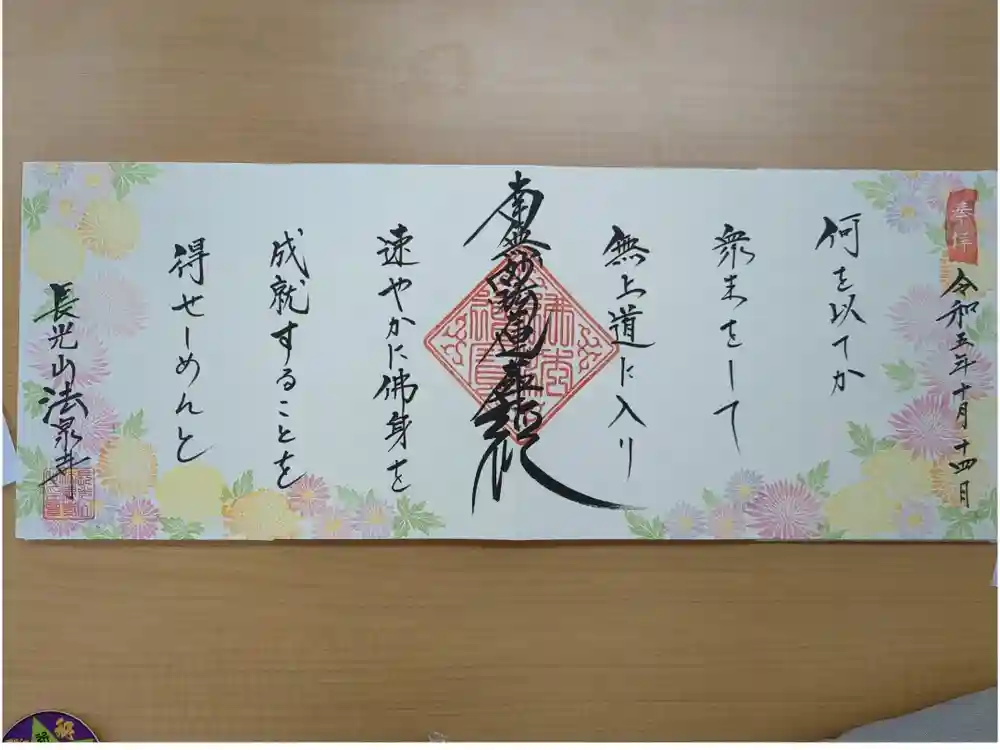 奉拝
令和五年十月十四日
何を以てか
衆生をして
無上道に入り
南無妙法蓮華経
速やかに佛身を
成就することを
得せしめんと
長光山法泉寺